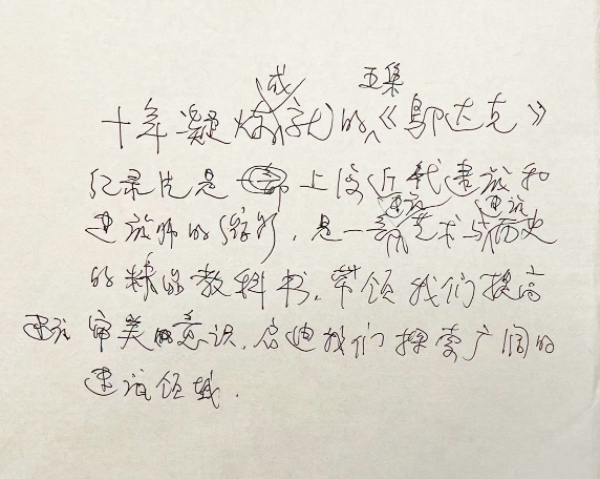 成 五集
十年凝炼的《邬达克》
纪录片是一部上海近代建筑和
建筑 建筑
建筑师的缩影，是一部艺术与历史
的精品教科书，带领我们提高
建筑审美意识，启迪我们探索广阔的
建筑领域.